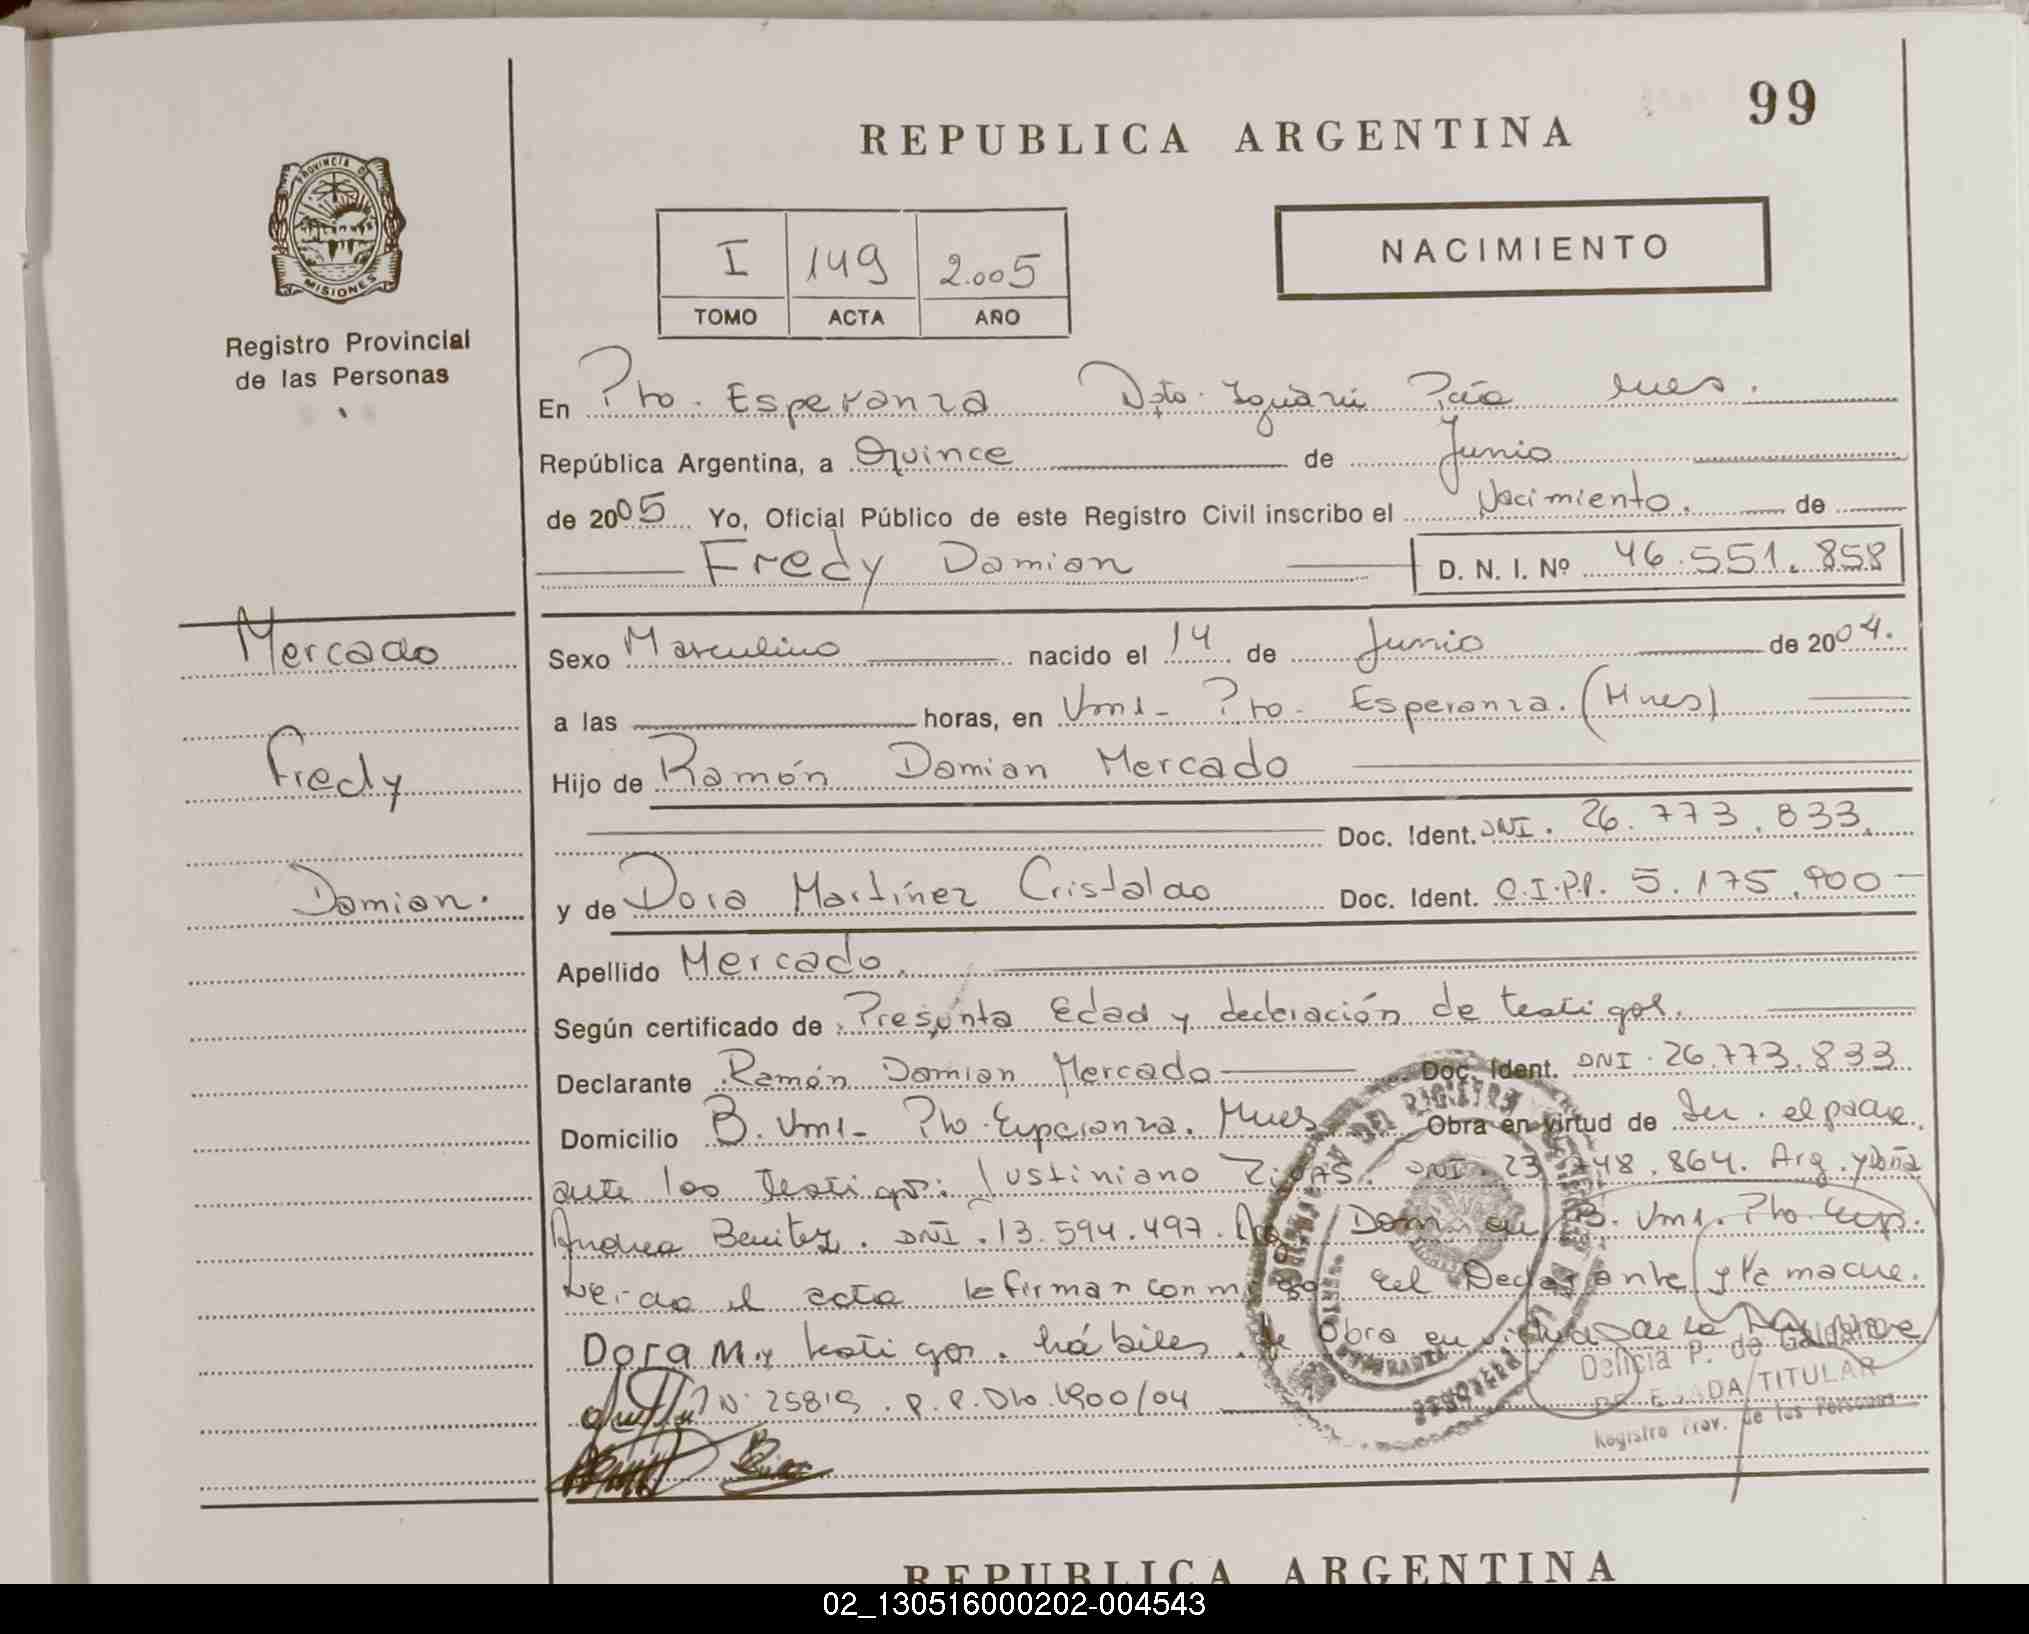 99
REPUBLICA ARGENTINA
PROVINCIA DE
MISIONES
Registro Provincial
de las Personas
NACIMIENTO
I 149 2.005
TOMO ACTA AÑO
En Pto. Esperanza Dpto. Iguazú Pcia Mnes.
República Argentina, a Quince de Junio
de 2005 Yo, Oficial Público de este Registro Civil inscribo el Nacimiento. de
Fredy Damian D. N. I. Nº 46.551.858
Mercado
Fredy
Damian.
Sexo Masculino nacido el 14 de Junio de 2004.
a las horas, en Km1- Pto. Esperanza. (Mnes)
Hijo de Ramón Damian Mercado
Doc. Ident. DNI. 26.773.833.
y de Dora Martínez Cristaldo Doc. Ident. C.I.P.P. 5.175.900-
Apellido Mercado.
Según certificado de Presunta Edad y declaración de testigos.
Declarante Ramón Damian Mercado Doc. Ident. DNI. 26.773.833
Domicilio B. Km1- Pto. Esperanza. Mnes Obra en virtud de Ser. el padre.
ante los testigos: Justiniano DNI. 23.748.864. Arg. y Doña
Andrea Benitez. DNI. 13.594.497. Arg Dom. en B. Km1. Pto. Esp.
Leido el acta la firman conmigo el Declarante y la madre.
Dora M. y testigos. hábiles. Obra en virtud de la
Nº 25819. P.P. Dto. 1900/04
Delicia P. de
DELEGADA TITULAR
Registro Prov. de las Personas
REPUBLICA ARGENTINA
02_130516000202-004543